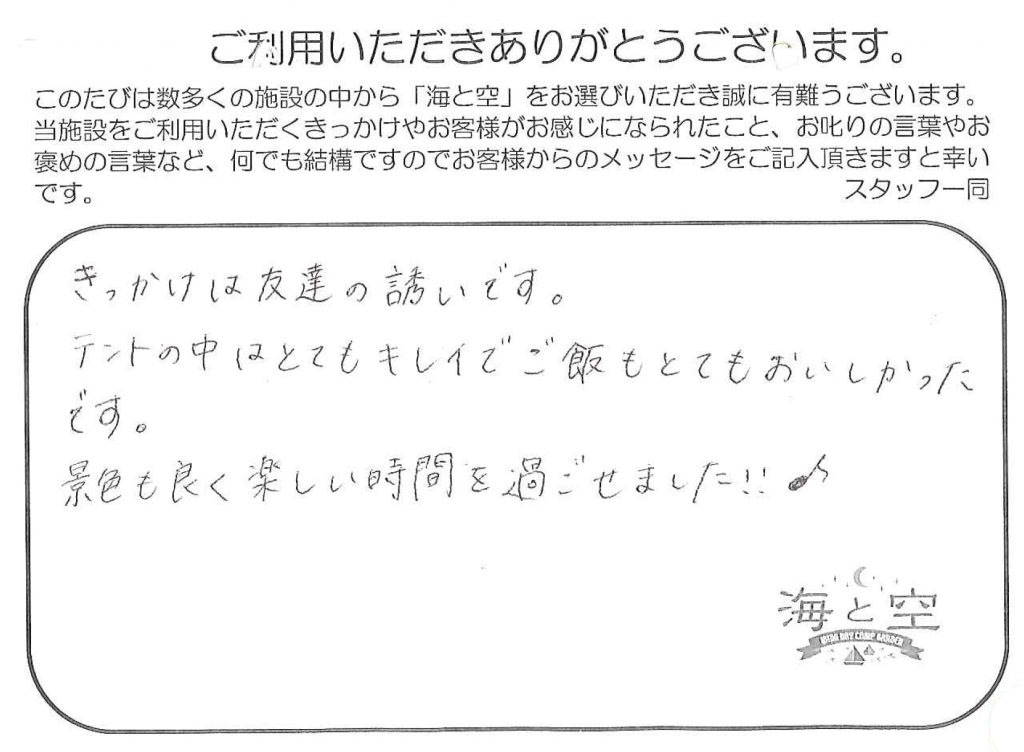 ご利用いただきありがとうございます。
このたびは数多くの施設の中から「海と空」をお選びいただき誠に有難うございます。
当施設をご利用いただくきっかけやお客様がお感じになられたこと、お叱りの言葉やお
褒めの言葉など、何でも結構ですのでお客様からのメッセージをご記入頂きますと幸い
です。
スタッフ一同
きっかけは友達の誘いです。
テントの中はとてもキレイでご飯もとてもおいしかった
です。
景色も良く楽しい時間を過ごせました!!♪
海と空
CAMP GARDEN